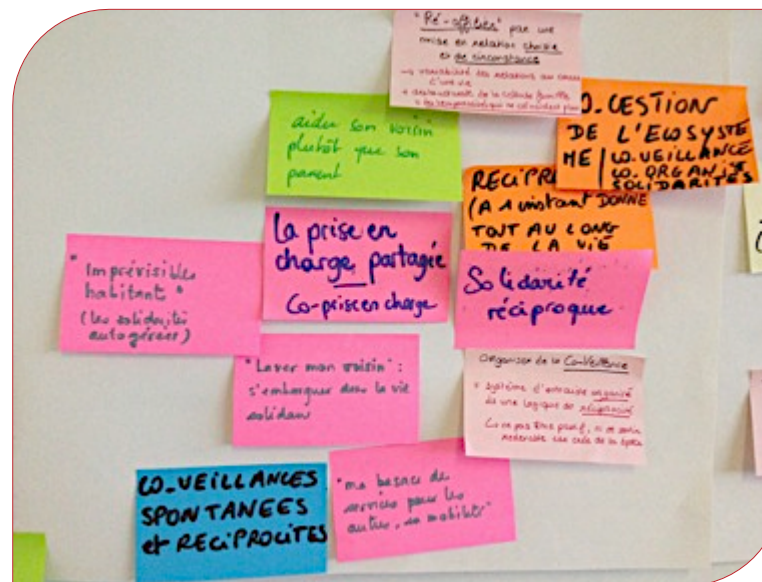 "Ré-affilier" par une
mise en relation choisie
et de circonstance
→ variabilité des relations au cours
d'une vie
de la cellule famille
aider son voisin
plutôt que son
parent
CO.GESTION
DE L'ECOSYSTÈ
ME / CO.VEILLANCE
CO.ORGANI
SOLIDARITÉS
RECIPR
(A 1 instant DONNÉ
TOUT AU LONG
DE LA VIE
La prise en
charge partagée
Co-prise en charge
Solidarité
réciproque
"Imprévisible
habitant"
(les solidarités
autogérées)
"Laver mon voisin" :
s'embarquer dans la vie
solidaire
Organiser de la Conveillance
système d'entraide organisé
ds une logique de réciprocité
CO-VEILLANCES
SPONTANEES
et RECIPROCITES
"ma besace de
services pour les
autres, en mobilité"